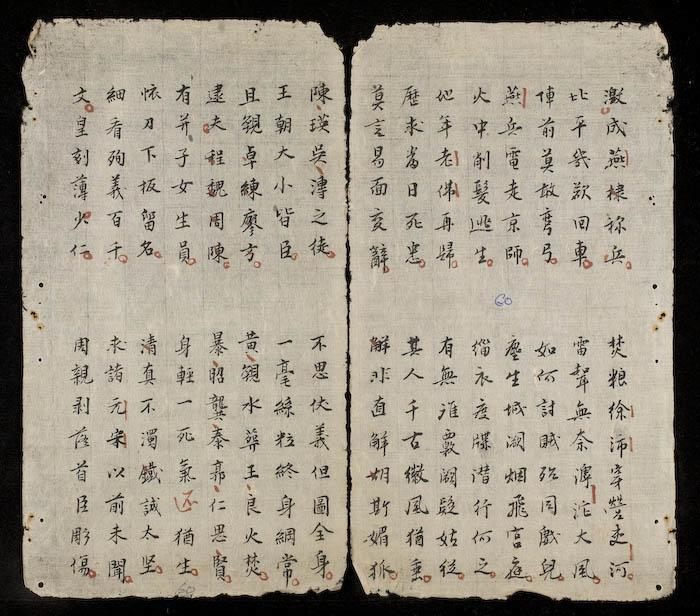 激成燕棣称兵 焚粮徐沛宰營走河
北平幾欲回車 雷聲無奈滹沱大風
陣前莫敢彎弓 如何討賊殆同戲兒
燕兵電走京師 塵生城闕烟飛宫庭
火中削髮逃生 缁衣度牒潜行何之
他年老佛再歸 有無誰覈闕疑姑從
歷求當日死忠 其人千古徽風猶垂
莫言易面变辭 解非直解胡斯媚狐
60
陳瑛吳溥之徒 不思伏義但圖全身
王朝大小皆臣 一毫絲粒終身綱常
且觀卓練廖方 黄觀水葬王良火焚
逮夫程魏周陳 暴昭龔泰郭仁思賢
有并子女生員 身輕一死氣还猶生
怀刀下扳留名 清真不濁鐵誠太坚
細看殉義百千 求諸元宋以前未聞
文皇刻薄少仁 周親剥落首臣彫傷